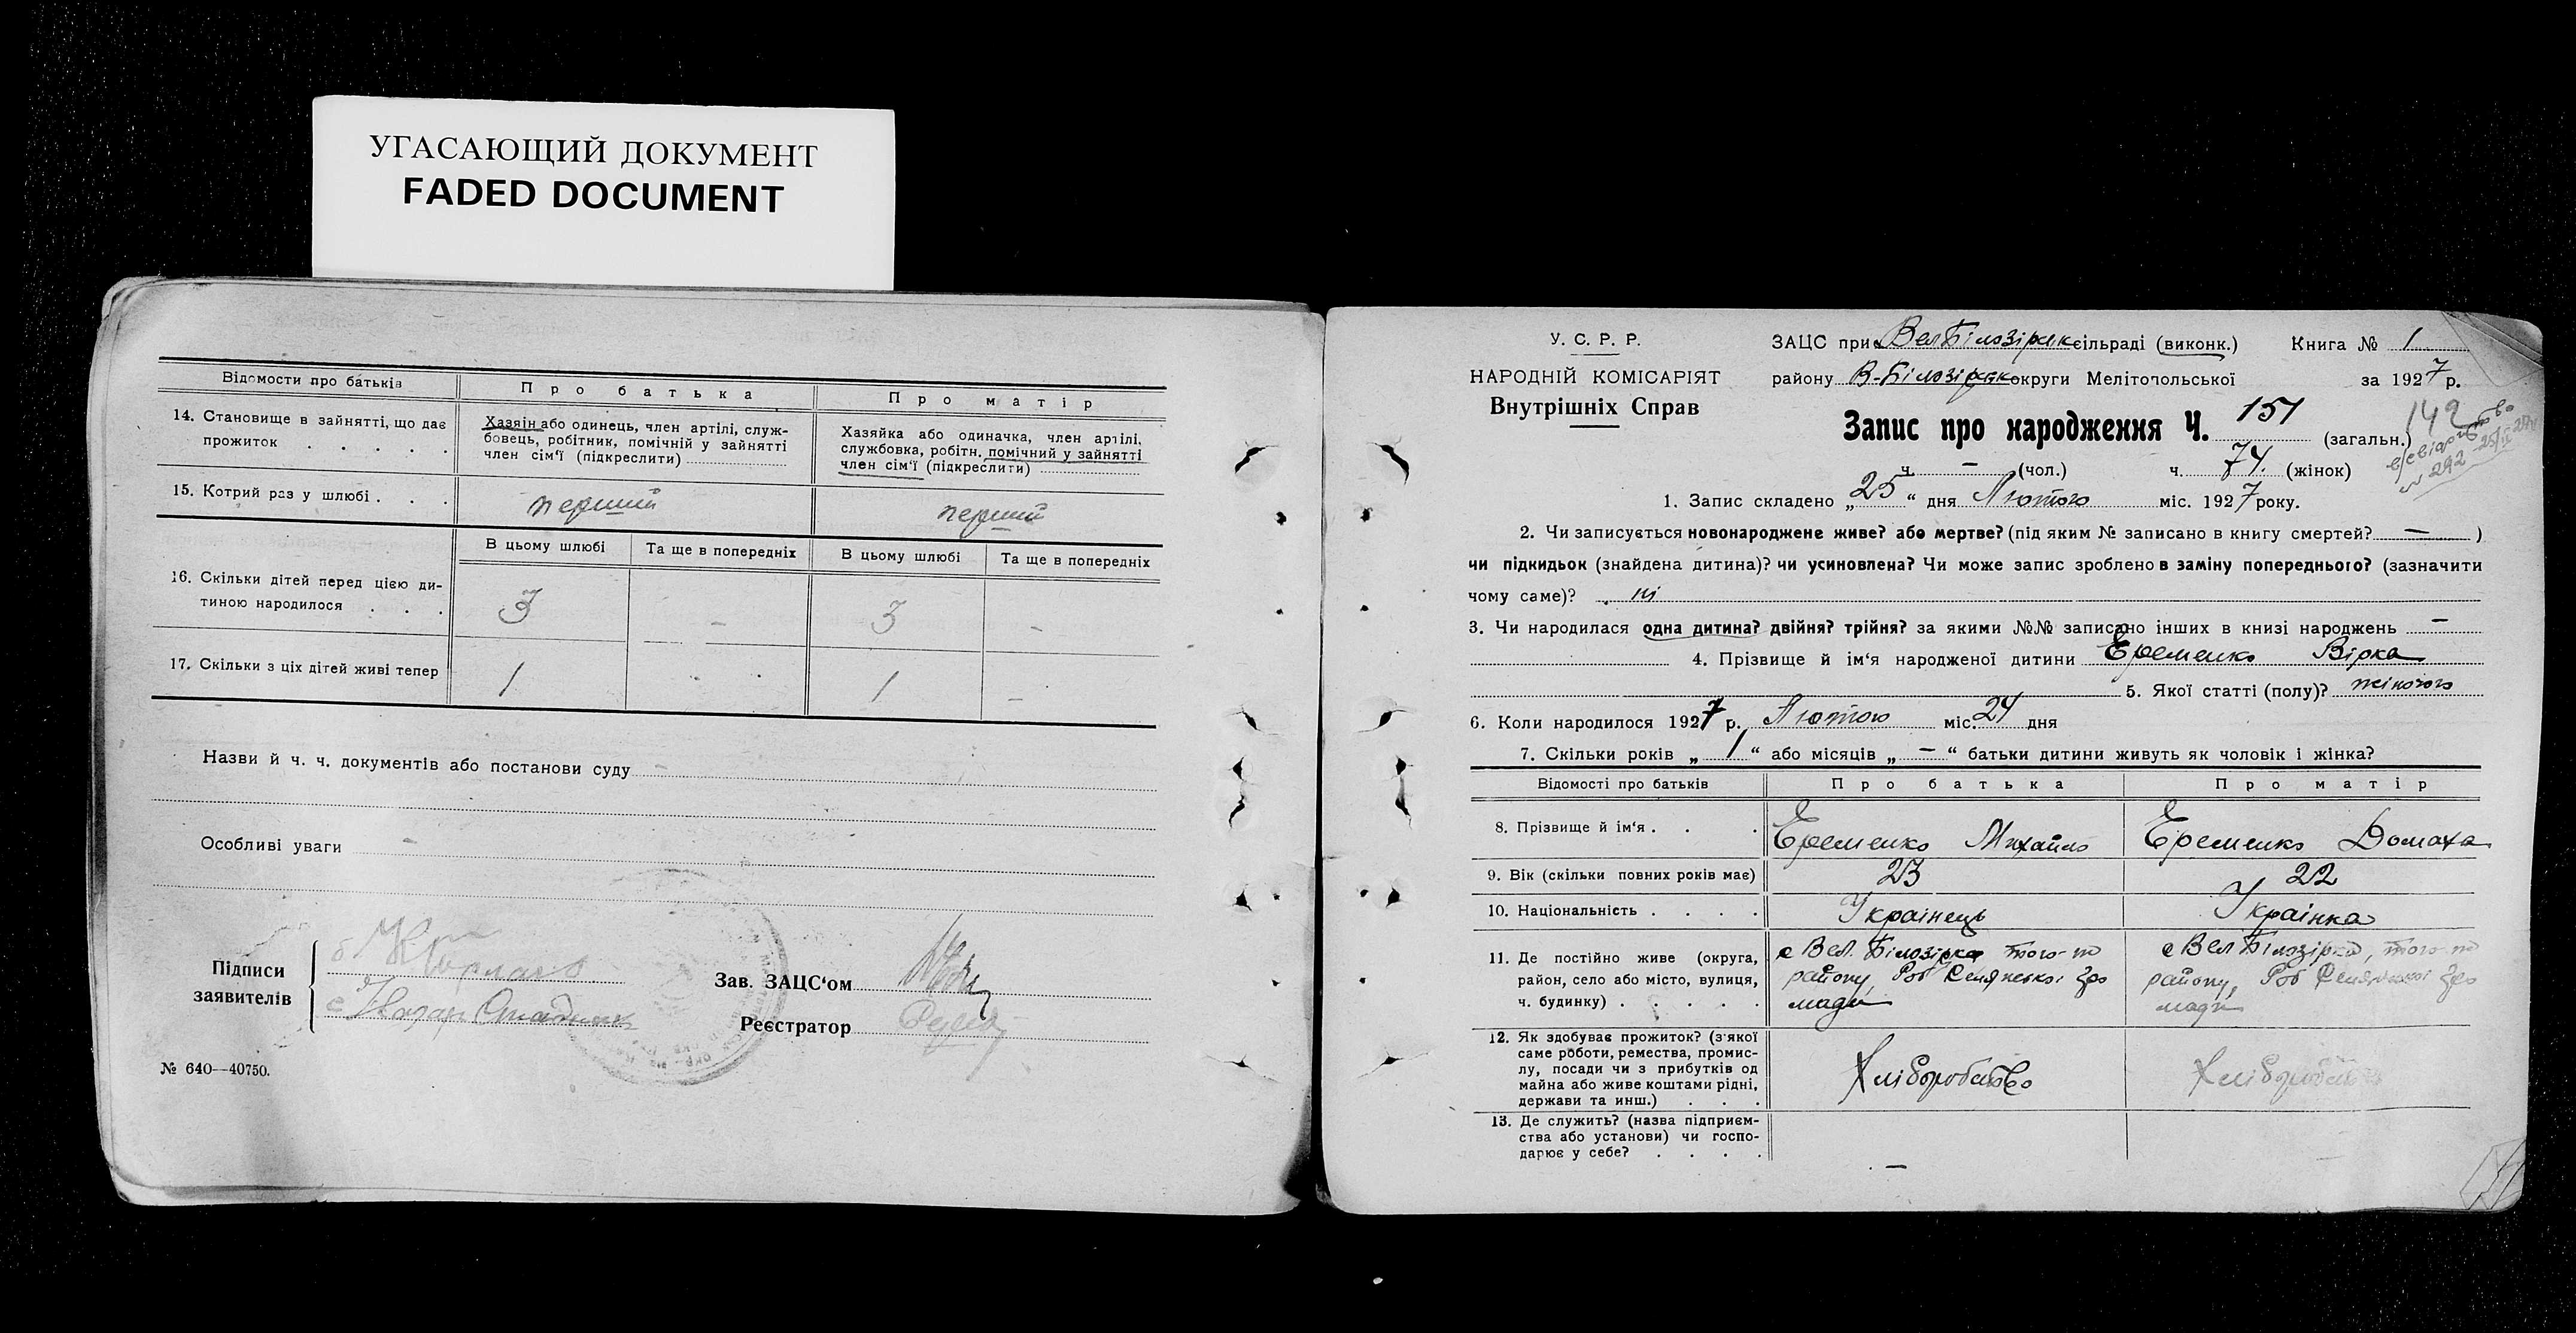 УГАСАЮЩИЙ ДОКУМЕНТ
FADED DOCUMENT
Відомости про батьків
Про батька
Про матір
14. Становище в зайнятті, що дає
прожиток . . . .
Хазяїн або одинець, член артілі, служ-
бовець, робітник, помічній у зайнятті
член сім'ї (підкреслити)
Хазяйка або одиначка, член артілі,
службовка, робітн. помічний у зайнятті
член сім'ї (підкреслити)
15. Котрий раз у шлюбі . . .
перший
перший
В цьому шлюбі
Та ще в попередніх
В цьому шлюбі
Та ще в попередніх
16. Скільки дітей перед цією ди-
тиною народилося . . .
3
-
3
-
17. Скільки з ціх дітей живі тепер
1
1
-
Назви й ч. ч. документів або постанови суду -
Особливі уваги -
Підписи
заявителів
Зав. ЗАЦС'ом
Реєстратор
№ 640—40750.
У. С. Р. Р.
НАРОДНІЙ КОМІСАРІЯТ
Внутрішніх Справ
ЗАЦС при Вел Білозірск сільраді (виконк.) Книга № 1
району В-Білозірск округи Мелітопольської за 1927 р.
Запис про народження Ч. 151 (загальн.)
142
ч. — (чол.) ч. 74. (жінок)
292
1. Запис складено „25“ дня Лютого міс. 1927 року.
2. Чи записується новонароджене живе? або мертве? (під яким № записано в книгу смертей? — )
чи підкидьок (знайдена дитина)? чи усиновлена? Чи може запис зроблено в заміну попереднього? (зазначити
чому саме)? ні
3. Чи народилася одна дитина? двійня? трійня? за якими №№ записано інших в книзі народжень —
4. Прізвище й ім'я народженої дитини Еременко Вірка
5. Якої статті (полу)? жіночого
6. Коли народилося 1927 р. Лютого міс. 24 дня
7. Скільки років „1“ або місяців „—“ батьки дитини живуть як чоловік і жінка?
Відомості про батьків
Про батька
Про матір
8. Прізвище й ім'я . . .
Еременко Михайло
Еременко Домаха
9. Вік (скільки повних років має)
23
22
10. Національність . . . .
Українець
Українка
11. Де постійно живе (округа,
район, село або місто, вулиця,
ч. будинку) . . . . .
с Вел. Білозірка того-по
району, Роб Селянської гро
мади
с Вел Білозірка, того-по
району, Роб Селянської гро
мади
12. Як здобуває прожиток? (з'якої
саме роботи, ремества, промис-
лу, посади чи з прибутків од
майна або живе коштами рідні,
держави та инш.) . . .
Хліборобство
Хліборобство
13. Де служить? (назва підприєм-
ства або установи) чи госпо-
дарює у себе? . . . .
—